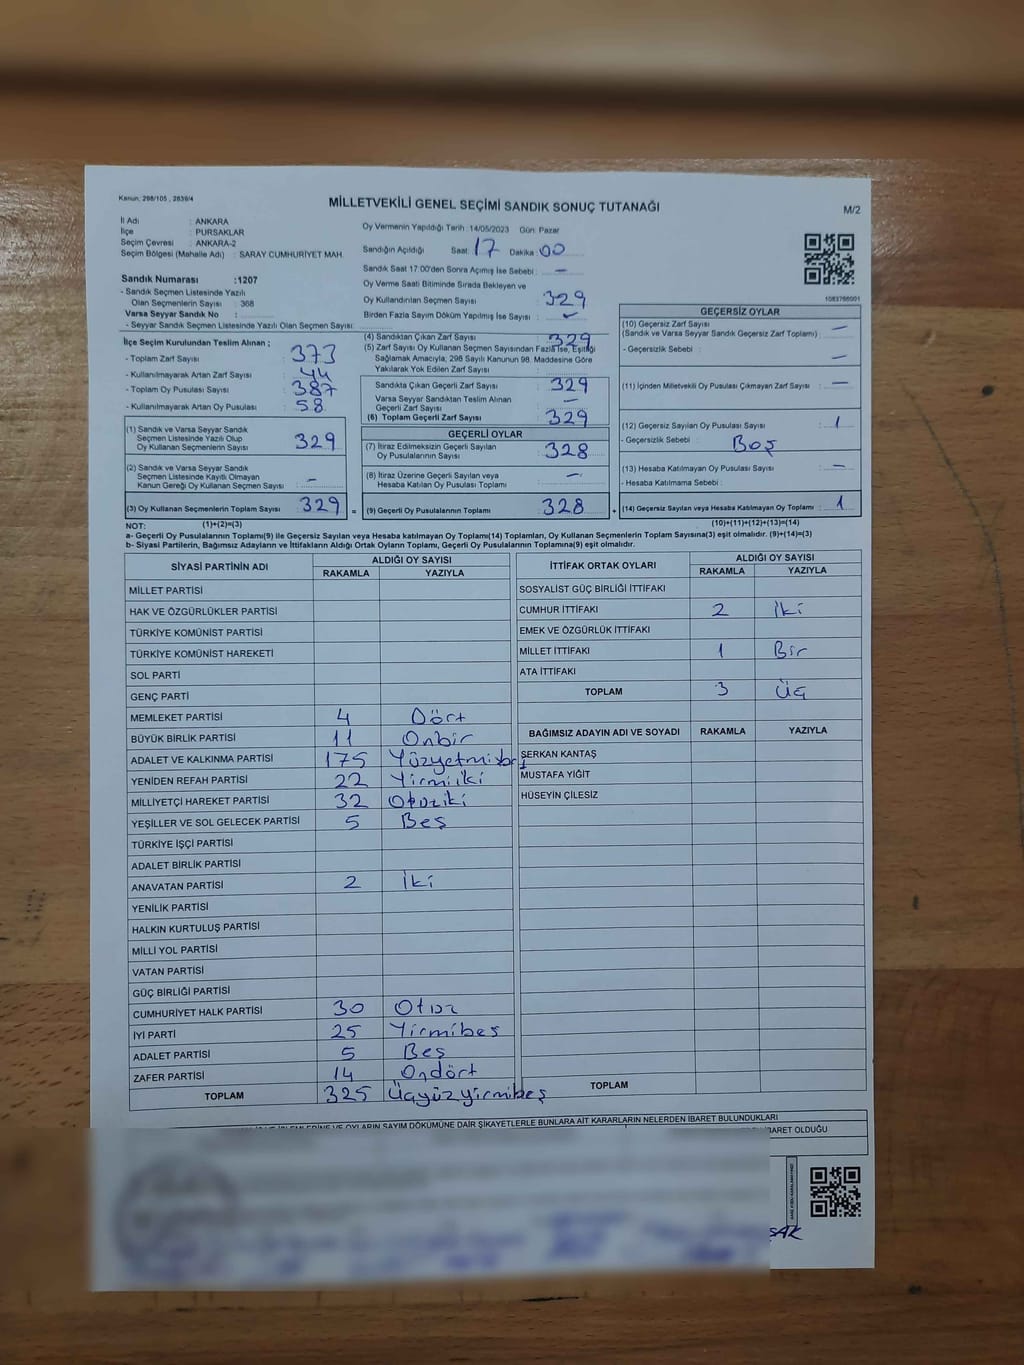 Kanun: 298/105 , 2839/4
MİLLETVEKİLİ GENEL SEÇİMİ SANDIK SONUÇ TUTANAĞI
M/2
İl Adı : ANKARA
İlçe : PURSAKLAR
Seçim Çevresi : ANKARA-2
Seçim Bölgesi (Mahalle Adı) : SARAY CUMHURİYET MAH.
Sandık Numarası :1207
- Sandık Seçmen Listesinde Yazılı
Olan Seçmenlerin Sayısı : 368
Varsa Seyyar Sandık No :
- Seyyar Sandık Seçmen Listesinde Yazılı Olan Seçmen Sayısı:
Oy Vermenin Yapıldığı Tarih :14/05/2023 Gün: Pazar
Sandığın Açıldığı Saat: 17 Dakika: 00
Sandık Saat 17:00'den Sonra Açılmış İse Sebebi: —
Oy Verme Saati Bitiminde Sırada Bekleyen ve
Oy Kullandırılan Seçmen Sayısı : 329
Birden Fazla Sayım Döküm Yapılmış İse Sayısı :
1083768001
İlçe Seçim Kurulundan Teslim Alınan ;
- Toplam Zarf Sayısı : 373
- Kullanılmayarak Artan Zarf Sayısı : 44
- Toplam Oy Pusulası Sayısı : 387
- Kullanılmayarak Artan Oy Pusulası : 58
(1) Sandık ve Varsa Seyyar Sandık
Seçmen Listesinde Yazılı Olup
Oy Kullanan Seçmenlerin Sayısı : 329
(2) Sandık ve Varsa Seyyar Sandık
Seçmen Listesinde Kayıtlı Olmayan
Kanun Gereği Oy Kullanan Seçmen Sayısı : —
(3) Oy Kullanan Seçmenlerin Toplam Sayısı : 329
(4) Sandıktan Çıkan Zarf Sayısı : 329
(5) Zarf Sayısı Oy Kullanan Seçmen Sayısından Fazla İse, Eşitliği
Sağlamak Amacıyla; 298 Sayılı Kanunun 98. Maddesine Göre
Yakılarak Yok Edilen Zarf Sayısı :
Sandıkta Çıkan Geçerli Zarf Sayısı : 329
Varsa Seyyar Sandıktan Teslim Alınan
Geçerli Zarf Sayısı : —
(6) Toplam Geçerli Zarf Sayısı : 329
GEÇERLİ OYLAR
(7) İtiraz Edilmeksizin Geçerli Sayılan
Oy Pusulalarının Sayısı : 328
(8) İtiraz Üzerine Geçerli Sayılan veya
Hesaba Katılan Oy Pusulası Toplamı : —
= (9) Geçerli Oy Pusulalarının Toplamı : 328
GEÇERSİZ OYLAR
(10) Geçersiz Zarf Sayısı
(Sandık ve Varsa Seyyar Sandık Geçersiz Zarf Toplamı) : —
- Geçersizlik Sebebi : —
(11) İçinden Milletvekili Oy Pusulası Çıkmayan Zarf Sayısı : —
(12) Geçersiz Sayılan Oy Pusulası Sayısı : 1
- Geçersizlik Sebebi : Boş
(13) Hesaba Katılmayan Oy Pusulası Sayısı : —
- Hesaba Katılmama Sebebi :
+ (14) Geçersiz Sayılan veya Hesaba Katılmayan Oy Toplamı : 1
NOT: (1)+(2)=(3) (10)+(11)+(12)+(13)=(14)
a- Geçerli Oy Pusulalarının Toplamı(9) ile Geçersiz Sayılan veya Hesaba Katılmayan Oy Toplamı(14) Toplamları, Oy Kullanan Seçmenlerin Toplam Sayısına(3) eşit olmalıdır. (9)+(14)=(3)
b- Siyasi Partilerin, Bağımsız Adayların ve İttifakların Aldığı Oyların Toplamı, Geçerli Oy Pusulalarının Toplamına(9) eşit olmalıdır.
SİYASİ PARTİNİN ADI ALDIĞI OY SAYISI
RAKAMLA YAZIYLA
MİLLET PARTİSİ
HAK VE ÖZGÜRLÜKLER PARTİSİ
TÜRKİYE KOMÜNİST PARTİSİ
TÜRKİYE KOMÜNİST HAREKETİ
SOL PARTİ
GENÇ PARTİ
MEMLEKET PARTİSİ 4 Dört
BÜYÜK BİRLİK PARTİSİ 11 Onbir
ADALET VE KALKINMA PARTİSİ 175 Yüzyetmişbeş
YENİDEN REFAH PARTİSİ 22 Yirmiiki
MİLLİYETÇİ HAREKET PARTİSİ 32 Otuziki
YEŞİLLER VE SOL GELECEK PARTİSİ 5 Beş
TÜRKİYE İŞÇİ PARTİSİ
ADALET BİRLİK PARTİSİ
ANAVATAN PARTİSİ 2 İki
YENİLİK PARTİSİ
HALKIN KURTULUŞ PARTİSİ
MİLLİ YOL PARTİSİ
VATAN PARTİSİ
GÜÇ BİRLİĞİ PARTİSİ
CUMHURİYET HALK PARTİSİ 30 Otuz
İYİ PARTİ 25 Yirmibeş
ADALET PARTİSİ 5 Beş
ZAFER PARTİSİ 14 Ondört
TOPLAM 325 Üçyüzyirmibeş
İTTİFAK ORTAK OYLARI ALDIĞI OY SAYISI
RAKAMLA YAZIYLA
SOSYALİST GÜÇ BİRLİĞİ İTTİFAKI
CUMHUR İTTİFAKI 2 İki
EMEK VE ÖZGÜRLÜK İTTİFAKI
MİLLET İTTİFAKI 1 Bir
ATA İTTİFAKI
TOPLAM 3 Üç
BAĞIMSIZ ADAYIN ADI VE SOYADI RAKAMLA YAZIYLA
SERKAN KANTAŞ
MUSTAFA YİĞİT
HÜSEYİN ÇİLESİZ
TOPLAM
OYLARIN SAYIM DÖKÜMÜNE DAİR ŞİKAYETLERLE BUNLARA AİT KARARLARIN NELERDEN İBARET BULUNDUKLARI
İBARET OLDUĞU